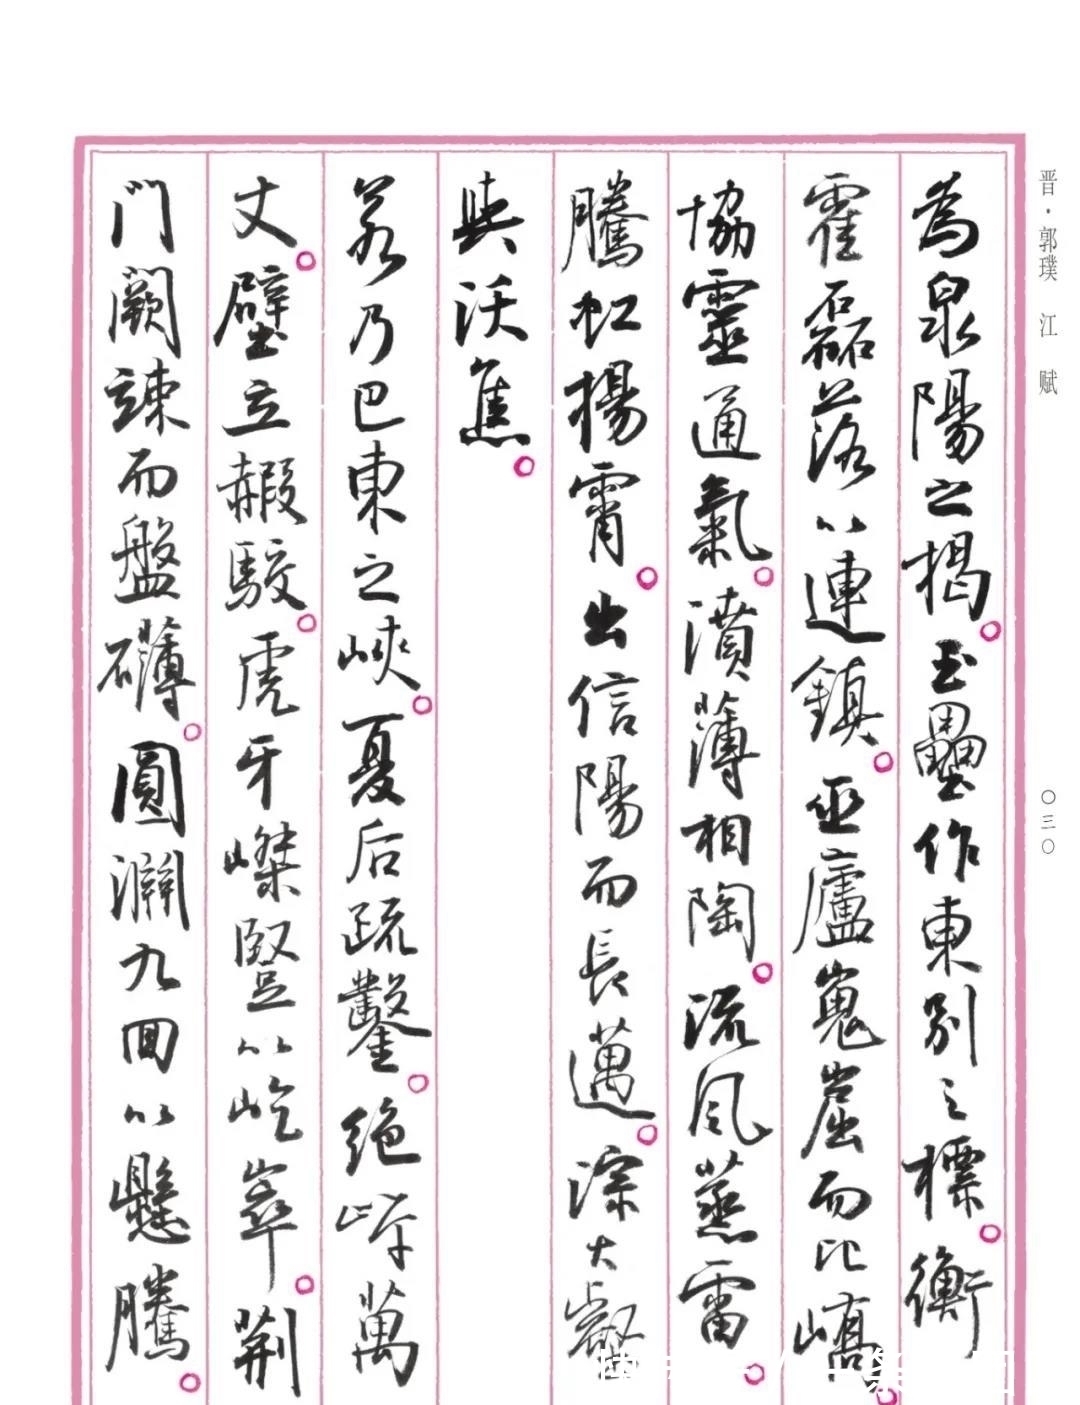 晋·郭璞 江 赋
為泉陽之揭。玉壘作東別之標。衡
霍磊落以連鎮。巫廬嵬崫而比嶠。
協靈通氣。濆薄相陶。流風蒸雷。
騰虹揚霄。出信陽而長邁。淙大壑
與沃焦。
若乃巴東之峽。夏后疏鑿。絕岸萬
丈。壁立赮駮。虎牙嵥豎以屹崒。荊
門闕竦而盤礴。圓淵九回以懸騰。
〇三〇